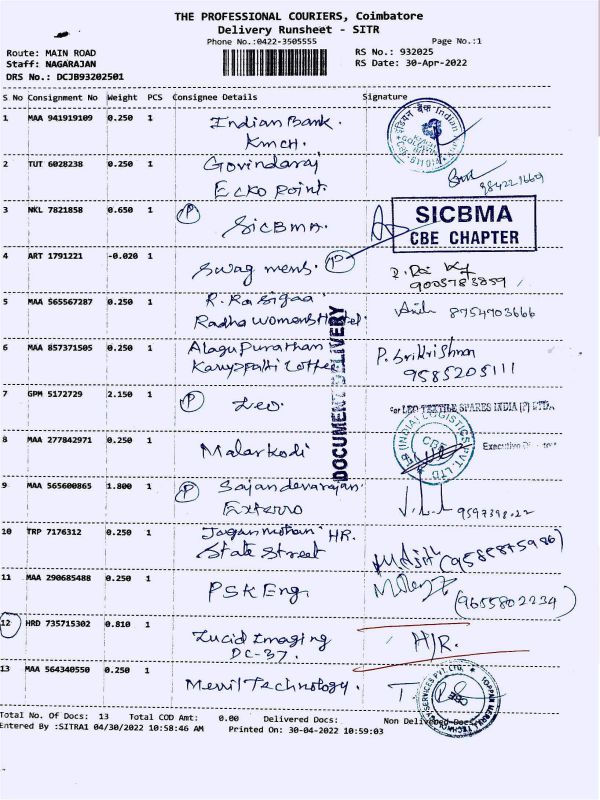 THE PROFESSIONAL COURIERS, Coimbatore
Delivery Runsheet - SITR
Phone No.:0422-3505555 Page No.:1
Route: MAIN ROAD RS No.: 932025
Staff: NAGARAJAN RS Date: 30-Apr-2022
DRS No.: DCJB93202501
S No Consignment No Weight PCS Consignee Details Signature
1 MAA 941919109 0.250 1 Indian Bank.
KMCH.
2 TUT 6028238 0.250 1 Govindaraj
Ecko Point.
3 NKL 7821858 0.650 1 P SICBMA.
SICBMA
CBE CHAPTER
4 ART 1791221 -0.020 1 Swag mens. P
9005783859
5 MAA 565567287 0.250 1 R. Rasigaa
Radha Womens Hostel. 8754703666
6 MAA 857371505 0.250 1 Alagupurathan P. Srikrishnan
Karuppatti Coffee 9585205111
DOCUMENT DELIVERY
7 GPM 5172729 2.150 1 P Leo. For LEO TEXTILE SPARES INDIA (P) LTD.
8 MAA 277842971 0.250 1 Malarkodi Executive
(INDIA) LOGISTICS PVT. LTD. CBE
9 MAA 565600865 1.800 1 P Sajan devarajan.
Exterro
10 TRP 7176312 0.250 1 Jagan mohan HR.
State Street
11 MAA 290685488 0.250 1 PSK Eng.
(9655802234)
12 HRD 735715302 0.810 1 Lucid Imaging H/R.
DC-37.
13 MAA 564340550 0.250 1 Merril Technology.
Total No. Of Docs: 13 Total COD Amt: 0.00 Delivered Docs: Non Delivered Docs:
Entered By :SITRA1 04/30/2022 10:58:46 AM Printed On: 30-04-2022 10:59:03